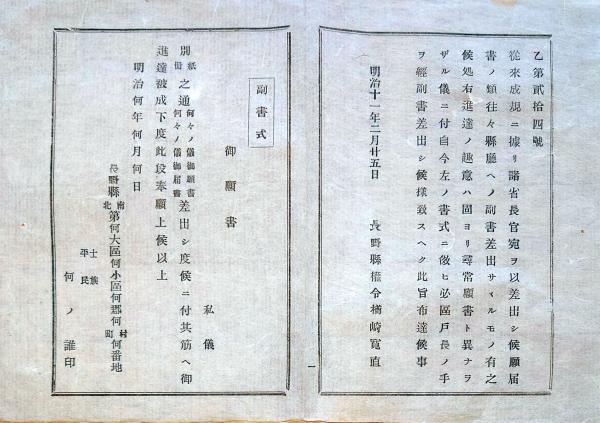 乙第貳拾四號
從來成規ニ據リ諸省長官宛ヲ以差出シ候願屆
書ノ類往々縣廳ヘノ副書差出サヾルモノ有之
候処右進達ノ趣意ハ固ヨリ尋常願書ト異ナラ
ザル儀ニ付自今左ノ書式ニ傚ヒ必區戸長ノ手
ヲ經副書差出シ候樣致スヘク此旨布達候事
明治十一年二月廿五日
長野縣權令楢崎寬直
一
副書式
御願書
私儀
別紙冊之通何々ノ儀御願書何々ノ儀御屆書差出シ度候ニ付其筋ヘ御
進達被成下度此段奉願上候以上
明治何年何月何日
長野縣南北第何大區何小區何郡何村町何番地
士族平民
何ノ誰印